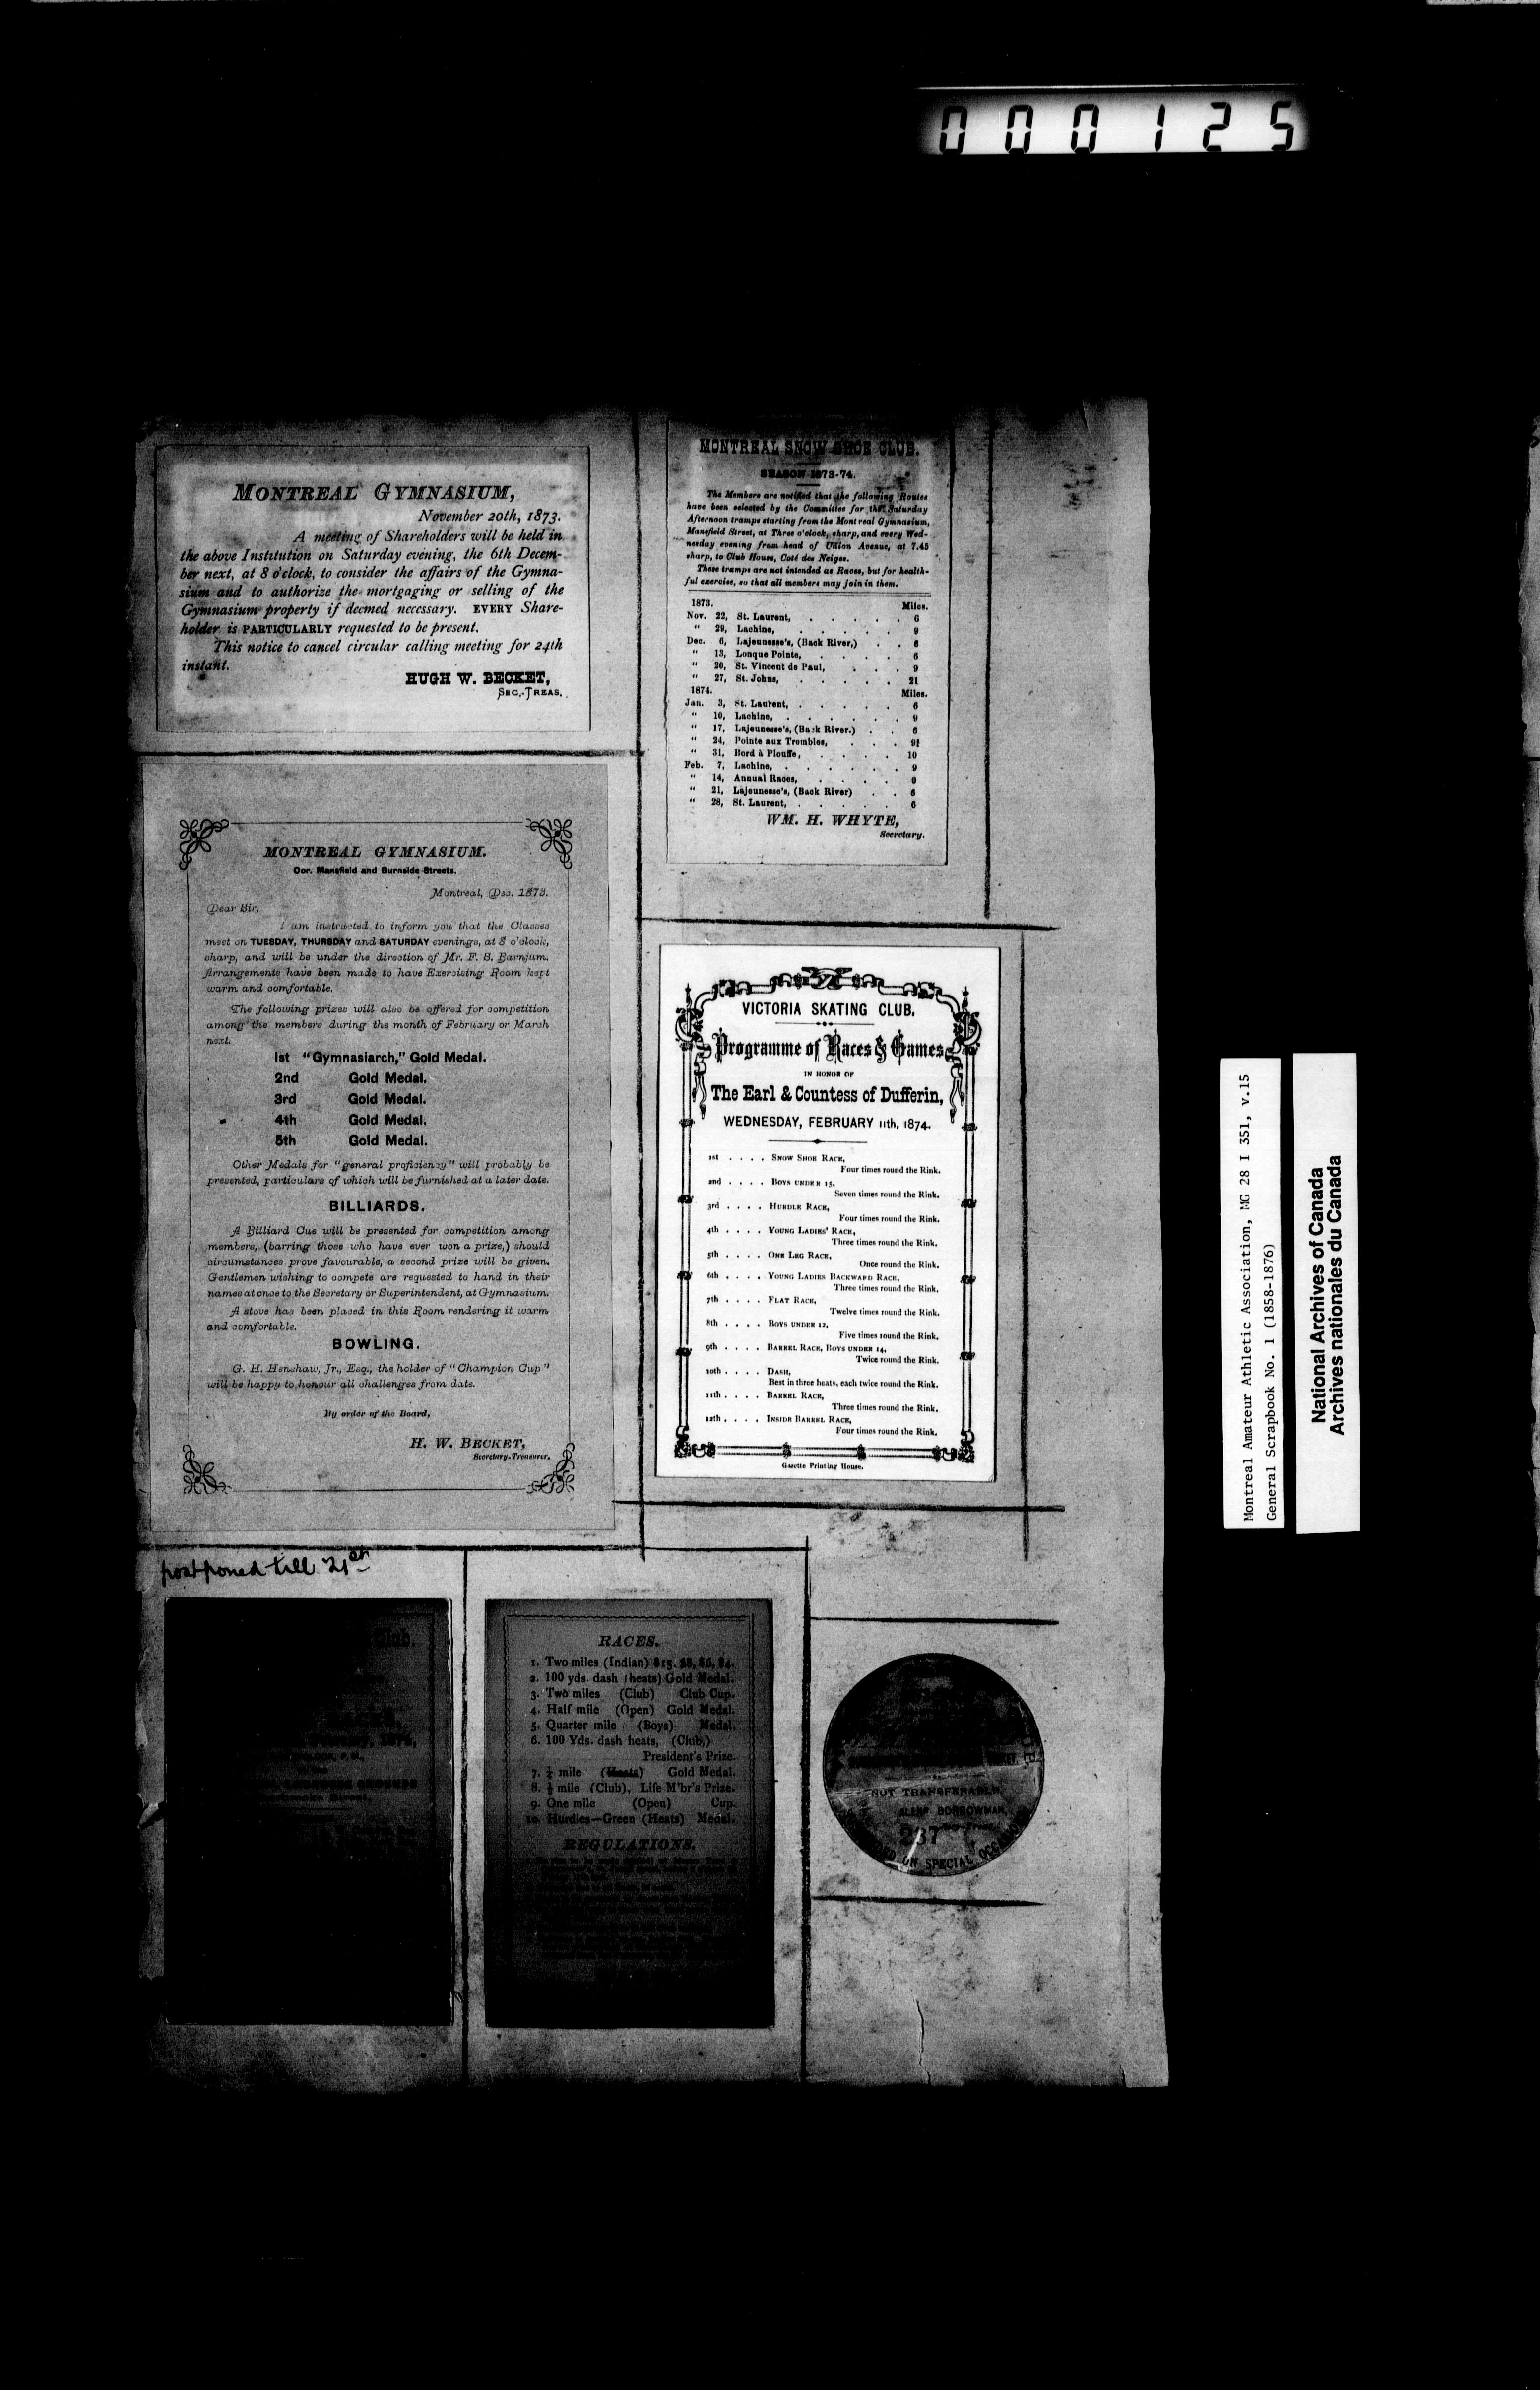 000125
MONTREAL GYMNASIUM,
November 20th, 1873.
A meeting of Shareholders will be held in
the above Institution on Saturday evening, the 6th Decem-
ber next, at 8 o'clock, to consider the affairs of the Gymna-
sium and to authorize the mortgaging or selling of the
Gymnasium property if deemed necessary. EVERY Share-
holder is PARTICULARLY requested to be present.
This notice to cancel circular calling meeting for 24th
instant.
HUGH W. BECKET,
SEC.-TREAS.
MONTREAL SNOW SHOE CLUB.
SEASON 1873-74.
The Members are notified that the following Routes
have been selected by the Committee for the Saturday
Afternoon tramps starting from the Montreal Gymnasium,
Mansfield Street, at Three o'clock, sharp, and every Wed-
nesday evening from head of Union Avenue, at 7.45
sharp, to Club House, Coté des Neiges.
These tramps are not intended as Races, but for health-
ful exercise, so that all members may join in them.
1873. Miles.
Nov. 22, St. Laurent, . . . . . 6
" 29, Lachine, . . . . . 9
Dec. 6, Lajeunesse's, (Back River,) . . 6
" 13, Longue Pointe, . . . . 6
" 20, St. Vincent de Paul, . . . 9
" 27, St. Johns, . . . . . 21
1874. Miles.
Jan. 3, St. Laurent, . . . . . 6
" 10, Lachine, . . . . . . 9
" 17, Lajeunesse's, (Back River.) . . 6
" 24, Pointe aux Trembles, . . . 9½
" 31, Bord à Plouffe, . . . . 10
Feb. 7, Lachine, . . . . . . 9
" 14, Annual Races, . . . . 0
" 21, Lajeunesse's, (Back River) . . 6
" 28, St. Laurent, . . . . . 6
WM. H. WHYTE,
Secretary.
MONTREAL GYMNASIUM.
Cor. Mansfield and Burnside Streets.
Montreal, Dec. 1873.
Dear Sir,
I am instructed to inform you that the Classes
meet on TUESDAY, THURSDAY and SATURDAY evenings, at 8 o'clock,
sharp, and will be under the direction of Mr. F. S. Barnjum.
Arrangements have been made to have Exercising Room kept
warm and comfortable.
The following prizes will also be offered for competition
among the members during the month of February or March
next.
1st "Gymnasiarch," Gold Medal.
2nd Gold Medal.
3rd Gold Medal.
4th Gold Medal.
5th Gold Medal.
Other Medals for "general proficiency" will probably be
presented, particulars of which will be furnished at a later date.
BILLIARDS.
A Billiard Cue will be presented for competition among
members, (barring those who have ever won a prize,) should
circumstances prove favourable, a second prize will be given.
Gentlemen wishing to compete are requested to hand in their
names at once to the Secretary or Superintendent, at Gymnasium.
A stove has been placed in this Room rendering it warm
and comfortable.
BOWLING.
G. H. Henshaw, Jr., Esq., the holder of "Champion Cup"
will be happy to honour all challenges from date.
By order of the Board,
H. W. BECKET,
Secretary-Treasurer.
VICTORIA SKATING CLUB.
Programme of Races & Games
IN HONOR OF
The Earl & Countess of Dufferin,
WEDNESDAY, FEBRUARY 11th, 1874.
1st . . . . SNOW SHOE RACE,
Four times round the Rink.
2nd . . . . BOYS UNDER 15,
Seven times round the Rink.
3rd . . . . HURDLE RACE,
Four times round the Rink.
4th . . . . YOUNG LADIES' RACE,
Three times round the Rink.
5th . . . . ONE LEG RACE,
Once round the Rink.
6th . . . . YOUNG LADIES BACKWARD RACE,
Three times round the Rink.
7th . . . . FLAT RACE,
Twelve times round the Rink.
8th . . . . BOYS UNDER 12,
Five times round the Rink.
9th . . . . BARREL RACE, BOYS UNDER 14,
Twice round the Rink.
10th . . . . DASH,
Best in three heats, each twice round the Rink.
11th . . . . BARREL RACE,
Three times round the Rink.
12th . . . . INSIDE BARREL RACE,
Four times round the Rink.
Gazette Printing House.
postponed till 21st
Club.
1874,
O'CLOCK, P. M.,
LACROSSE GROUNDS
Street.
RACES.
1. Two miles (Indian) $15, $8, $6, $4.
2. 100 yds. dash (heats) Gold Medal.
3. Two miles (Club) Club Cup.
4. Half mile (Open) Gold Medal.
5. Quarter mile (Boys) Medal.
6. 100 Yds. dash heats, (Club,)
President's Prize.
7. ½ mile (Heats) Gold Medal.
8. ½ mile (Club), Life M'br's Prize.
9. One mile (Open) Cup.
10. Hurdles—Green (Heats) Medal.
REGULATIONS.
NOT TRANSFERABLE.
ALEXR. BORROWMAN,
237
ON SPECIAL OCCASIONS
Montreal Amateur Athletic Association, MG 28 I 351, v.15
General Scrapbook No. 1 (1858-1876)
National Archives of Canada
Archives nationales du Canada